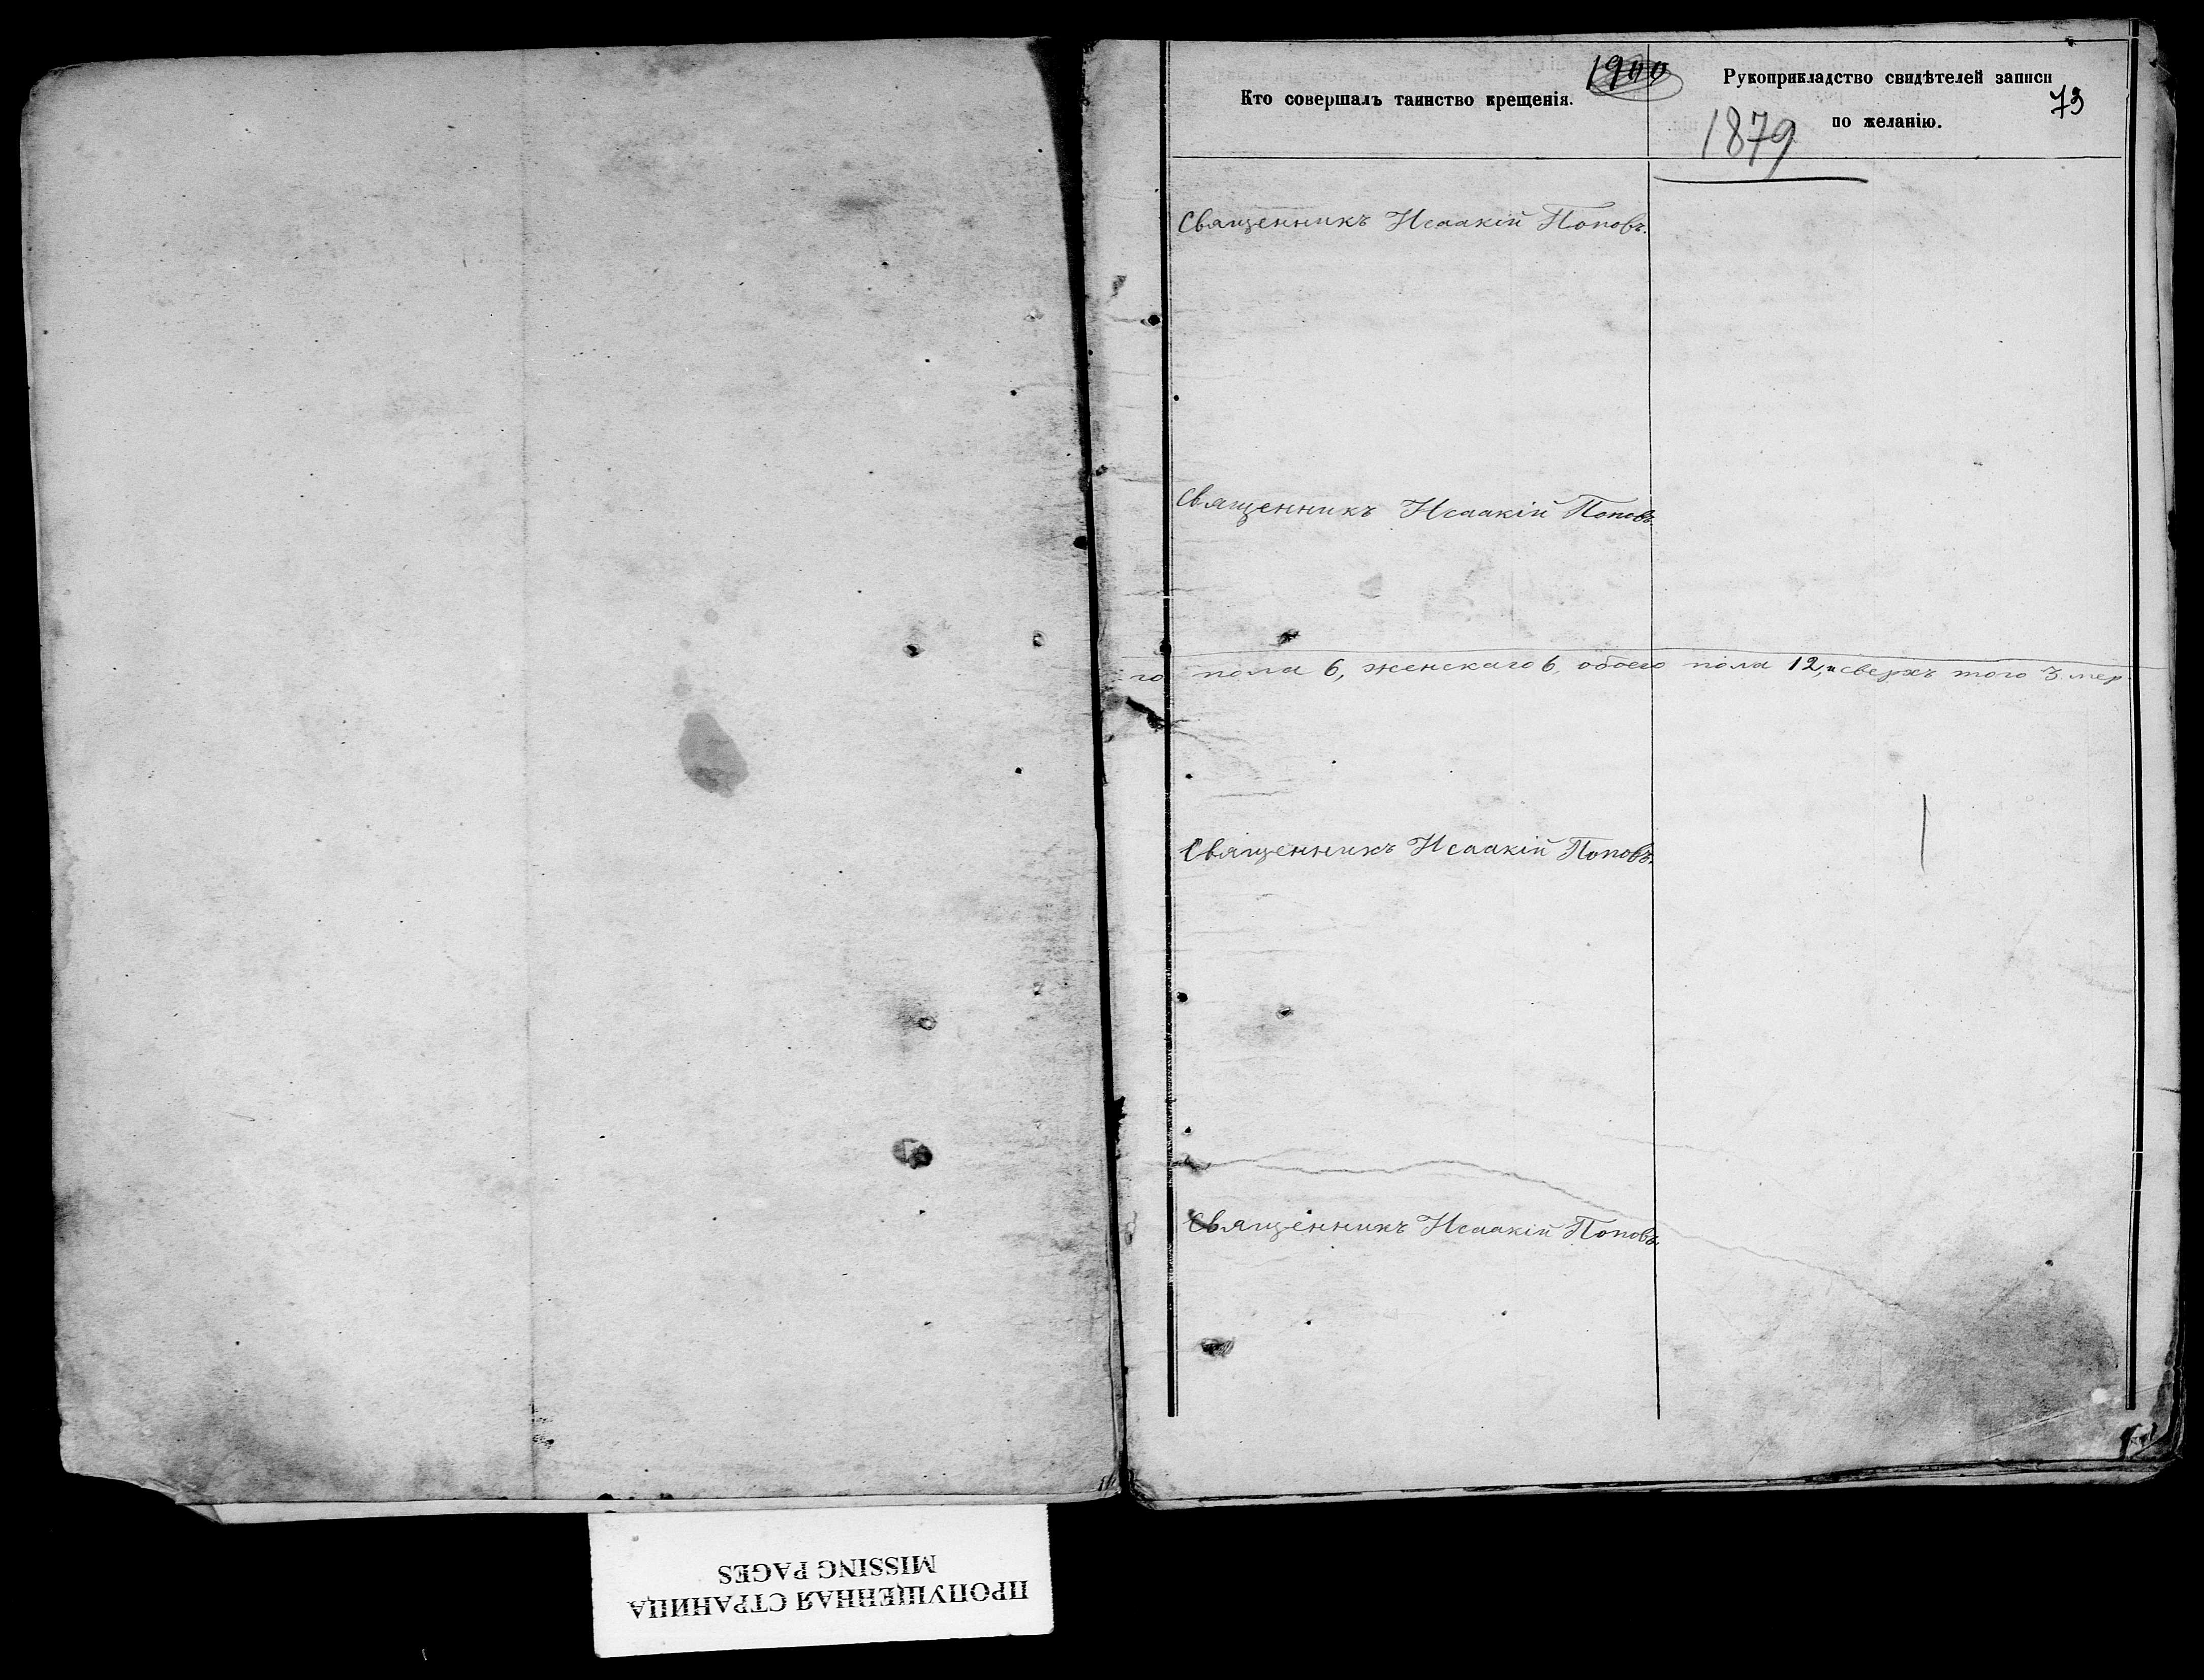 1900
Кто совершалъ таинство крещенія.
Рукоприкладство свидѣтелей записи
по желанію.
73
1879
Священникъ Исаакій Поповъ.
Священникъ Исаакій Поповъ.
го пола 6, женскаго 6, обоего пола 12, и сверхъ того 3 мер
Священникъ Исаакій Поповъ.
Священникъ Исаакій Поповъ.
ПРОПУЩЕННАЯ СТРАНИЦА
MISSING PAGES